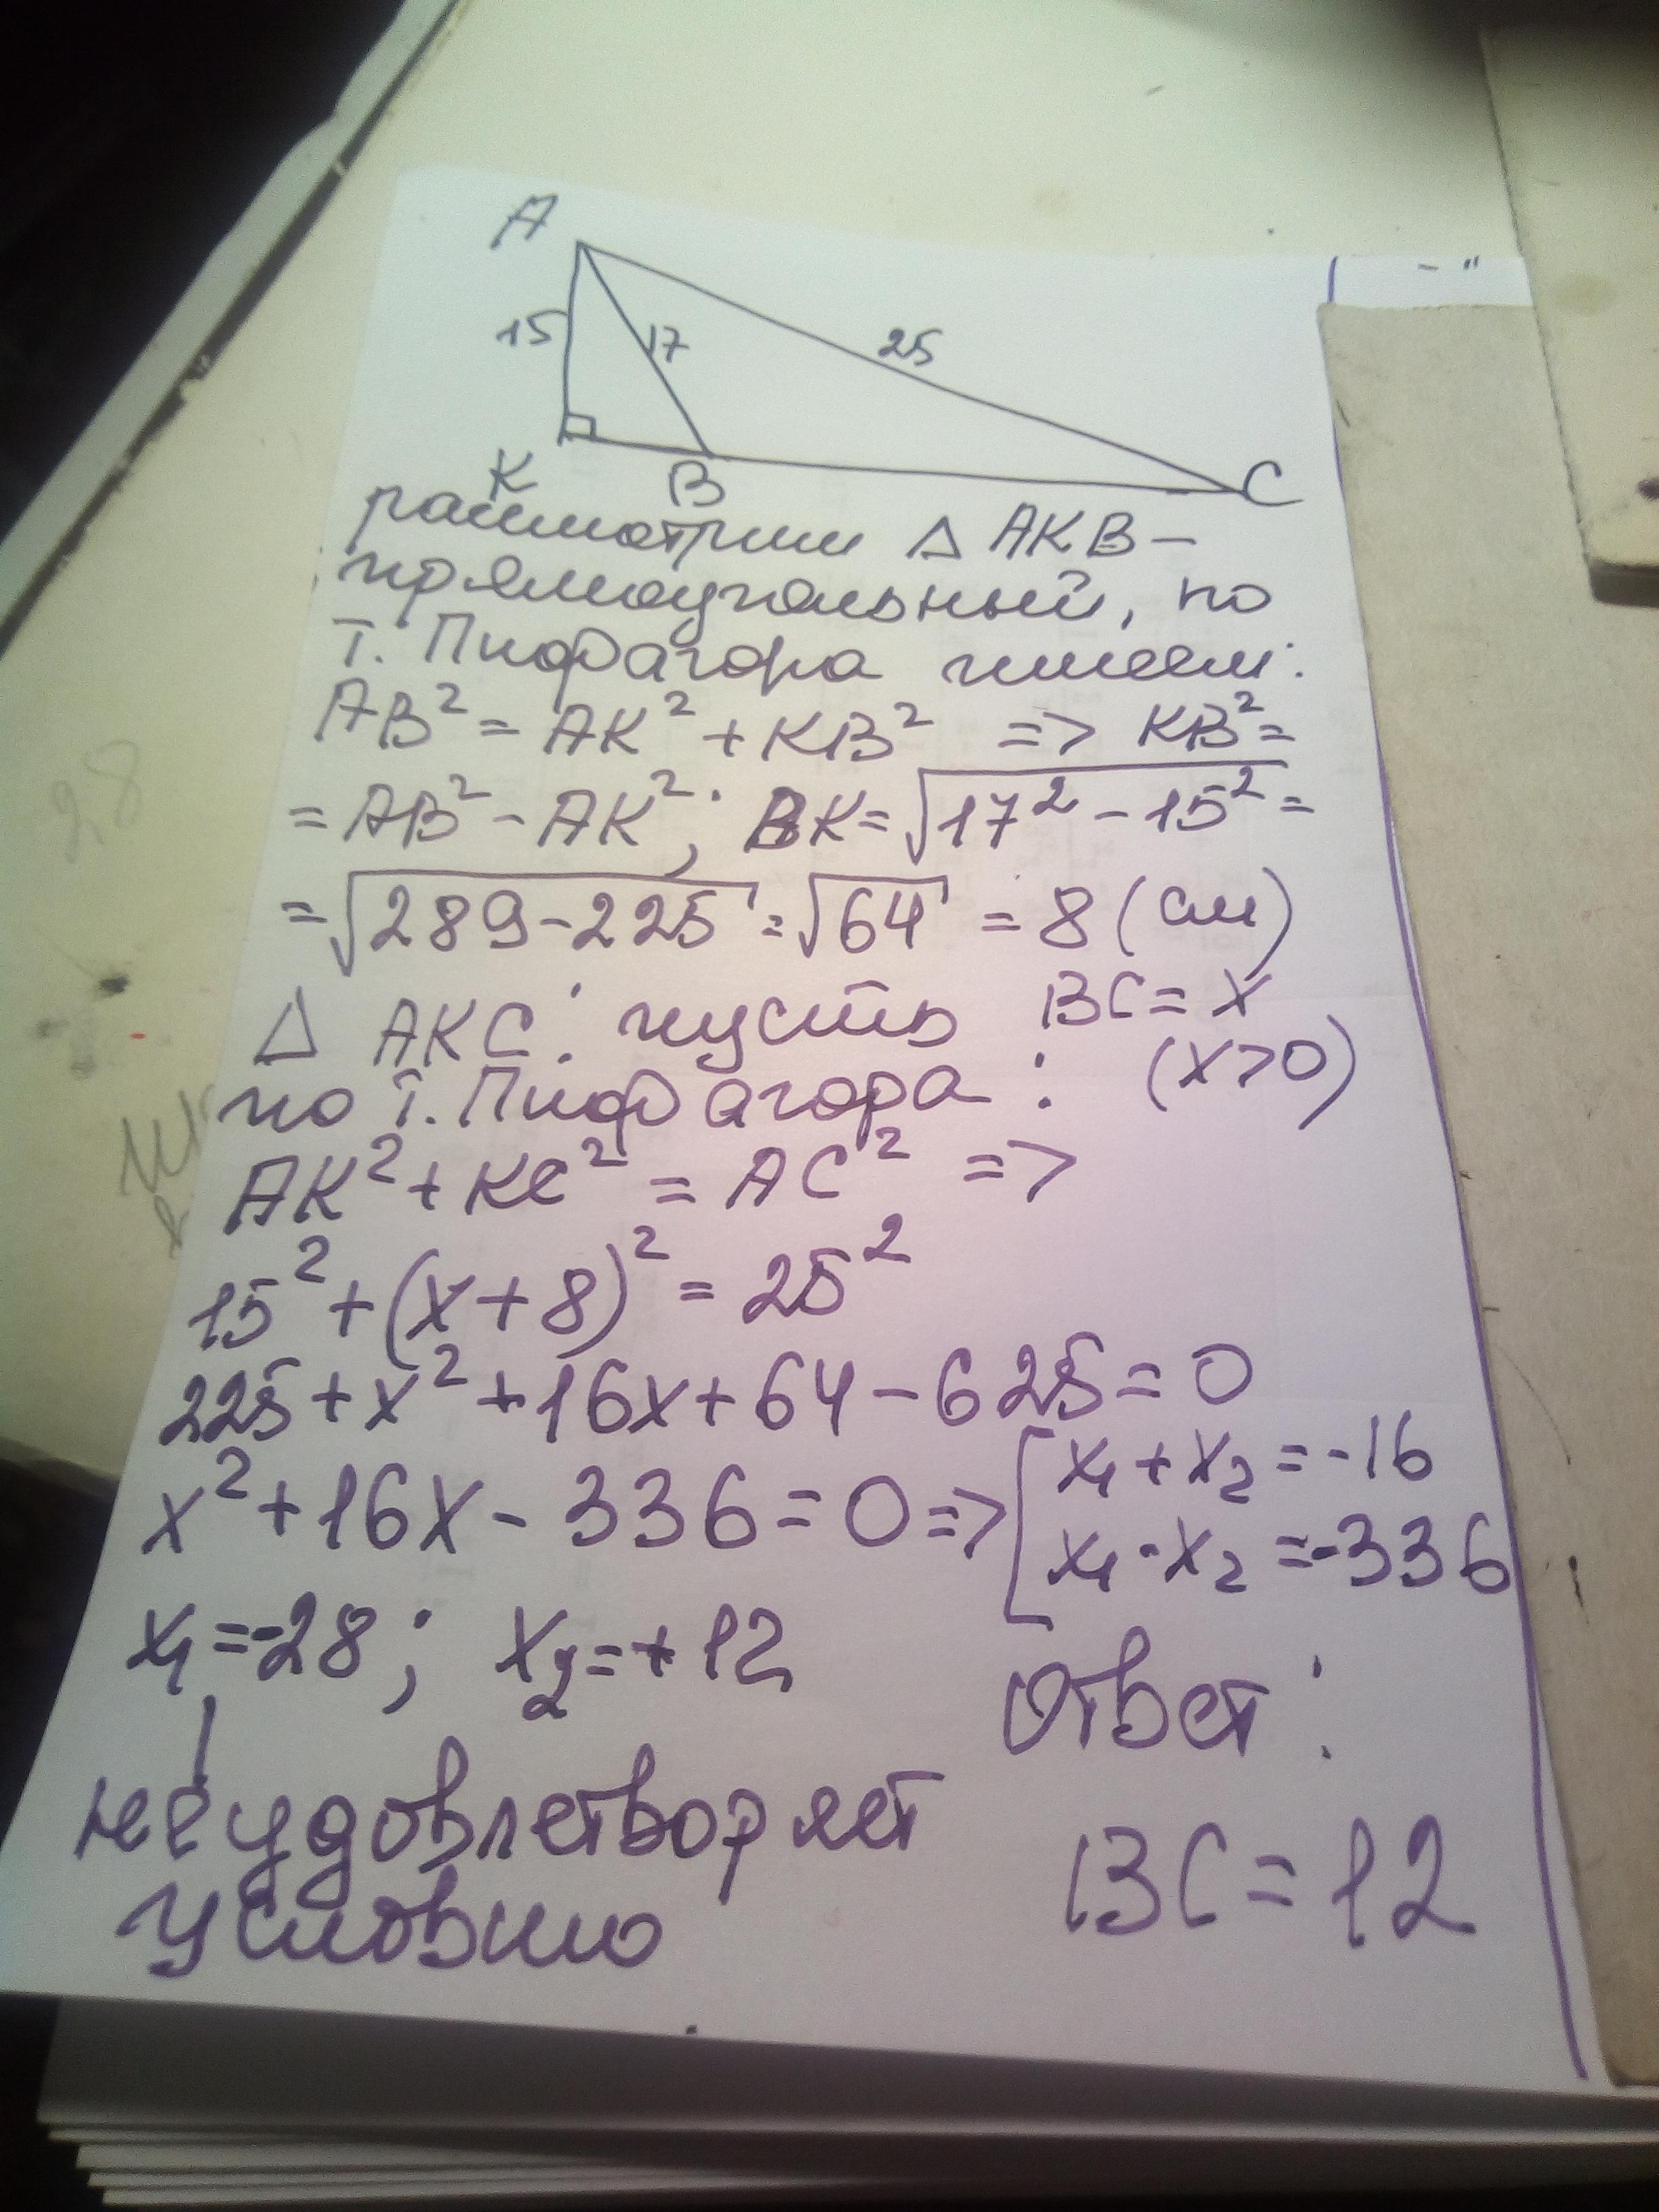 A
15
17
25
K
B
C
рассмотрим △ AKB –
прямоугольный, по
т. Пифагора имеем:
AB² = AK² + KB² => KB² =
= AB² - AK²; BK = √17² - 15² =
= √289 - 225 = √64 = 8 (см)
△ AKC: пусть BC = x
по т. Пифагора: (x>0)
AK² + KC² = AC² =>
15² + (x+8)² = 25²
225 + x² + 16x + 64 - 625 = 0
x² + 16x - 336 = 0 => [ x₁ + x₂ = -16
x₁ · x₂ = -336
x₁ = -28; x₂ = +12
не удовлетворяет
условию
Ответ:
BC = 12
28